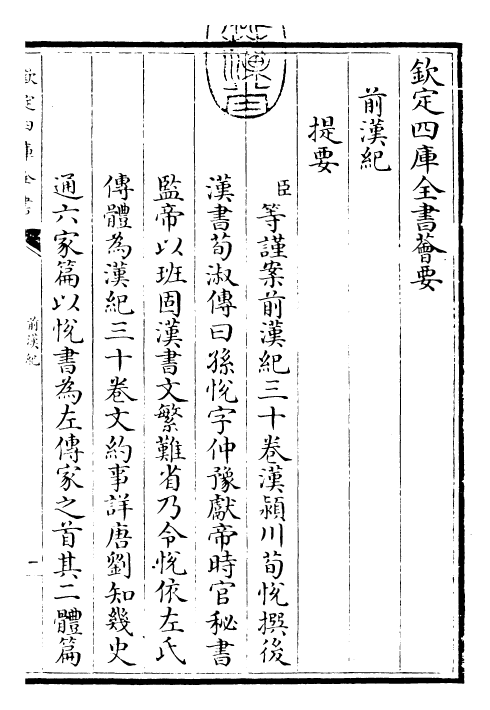 欽定四庫全書薈要
前漢紀
提要
臣等謹案前漢紀三十卷漢潁川荀悅撰後
漢書荀淑傳曰孫悅字仲豫獻帝時官秘書
監帝以班固漢書文繁難省乃令悅依左氏
傳體為漢紀三十卷文約事詳唐劉知幾史
通六家篇以悅書為左傳家之首其二體篇
欽定四庫全書
前漢紀
一